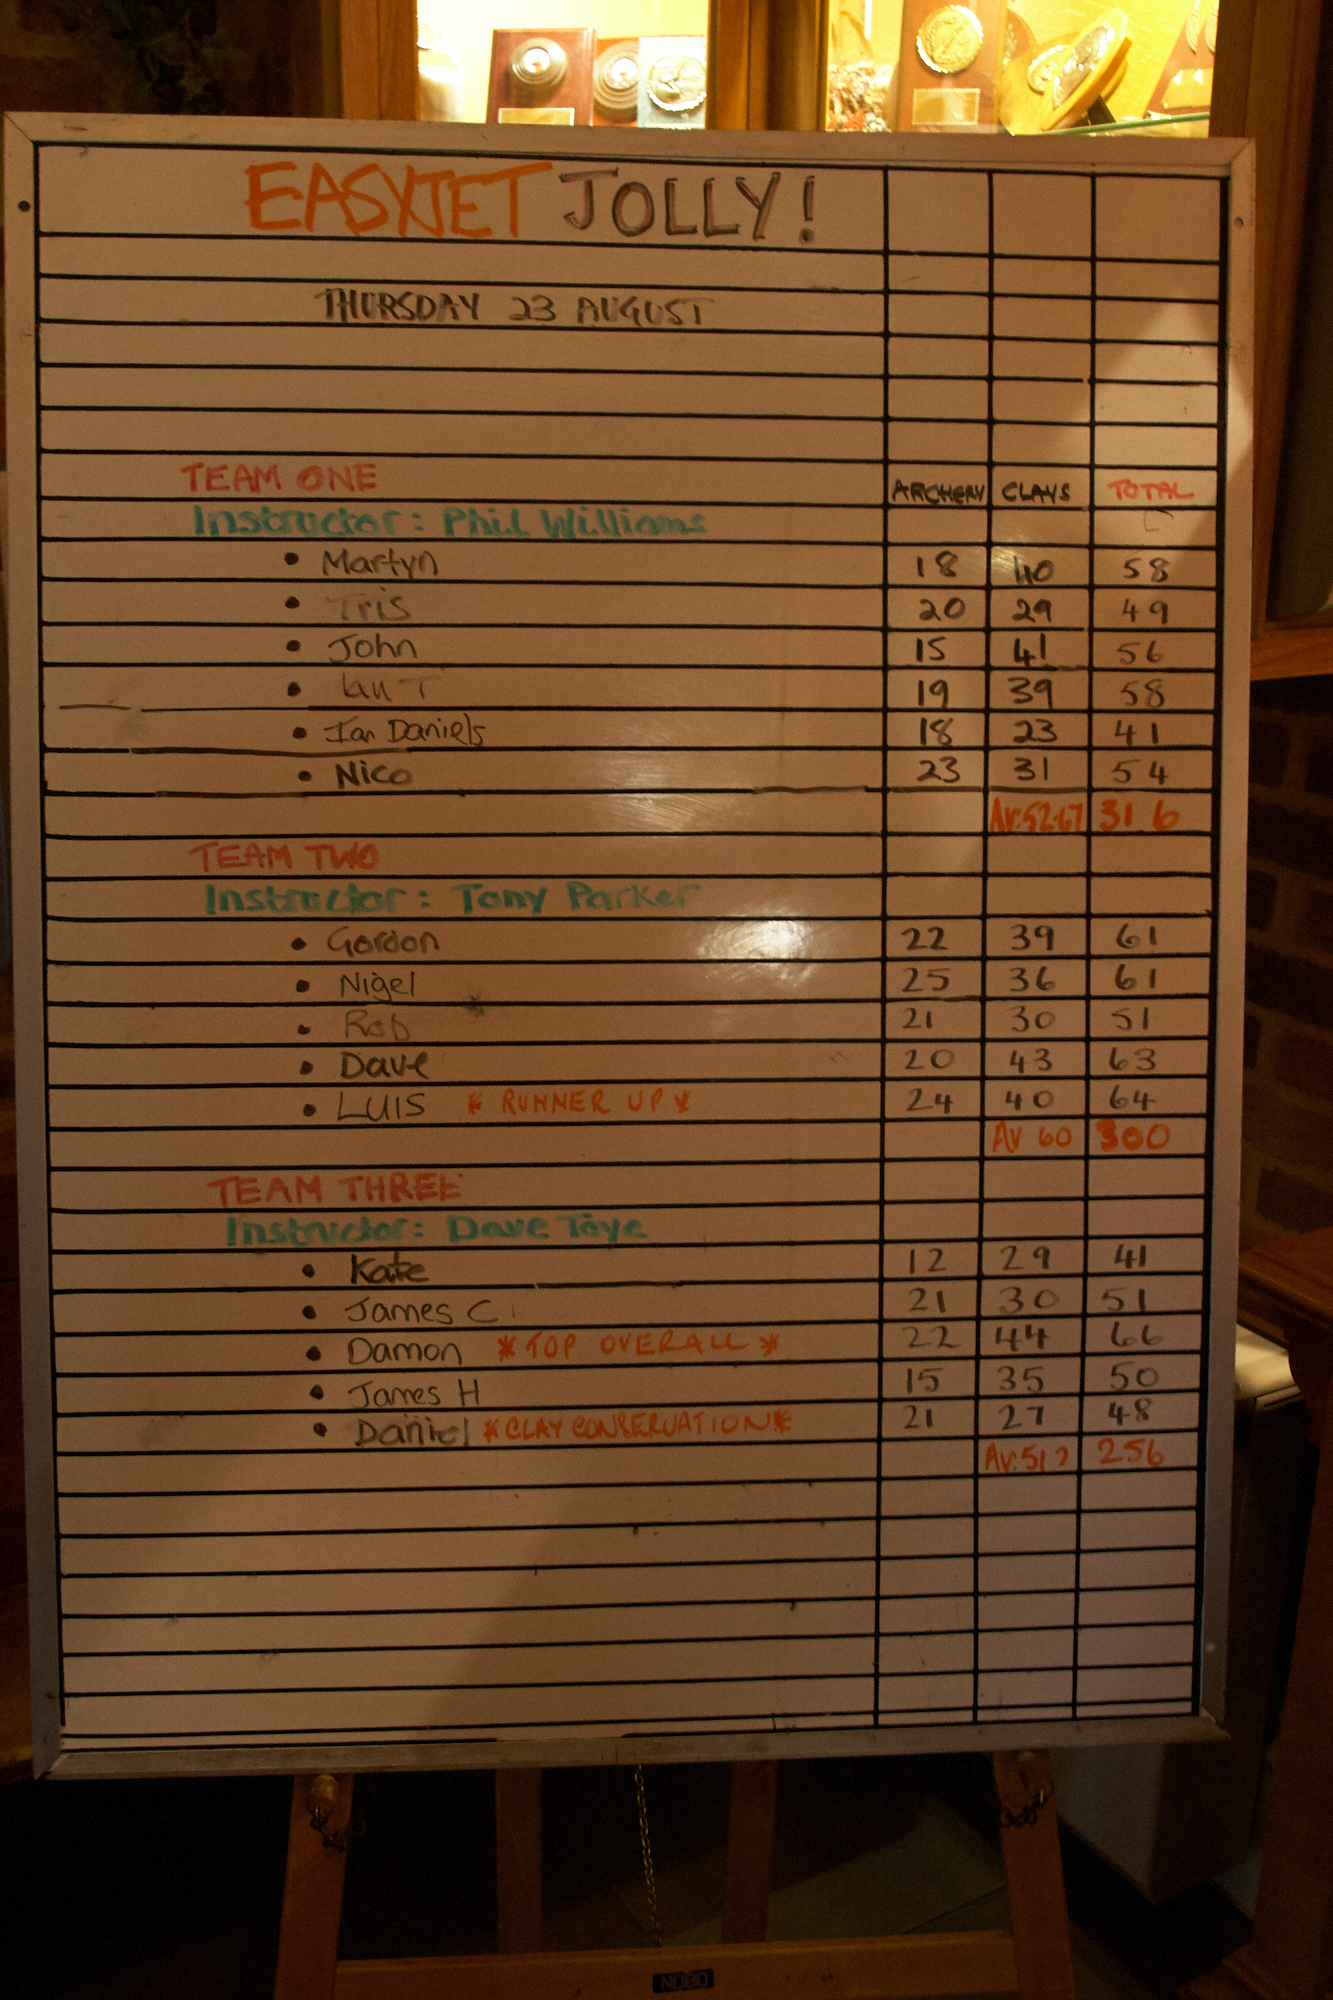 EASYJET JOLLY!
THURSDAY 23 AUGUST
TEAM ONE ARCHERY CLAYS TOTAL
Instructor: Phil Williams
• Martyn 18 40 58
• Tris 20 29 49
• John 15 41 56
• Ian T 19 39 58
• Ian Daniels 18 23 41
• Nico 23 31 54
Av:52.67 316
TEAM TWO
Instructor: Tony Parker
• Gordon 22 39 61
• Nigel 25 36 61
• Rob 21 30 51
• Dave 20 43 63
• LUIS * RUNNER UP * 24 40 64
Av 60 300
TEAM THREE
Instructor: Dave Toye
• Kate 12 29 41
• James C 21 30 51
• Damon * TOP OVERALL * 22 44 66
• James H 15 35 50
• Daniel * CLAY CONSERVATION * 21 27 48
Av:51.2 256
NOBO